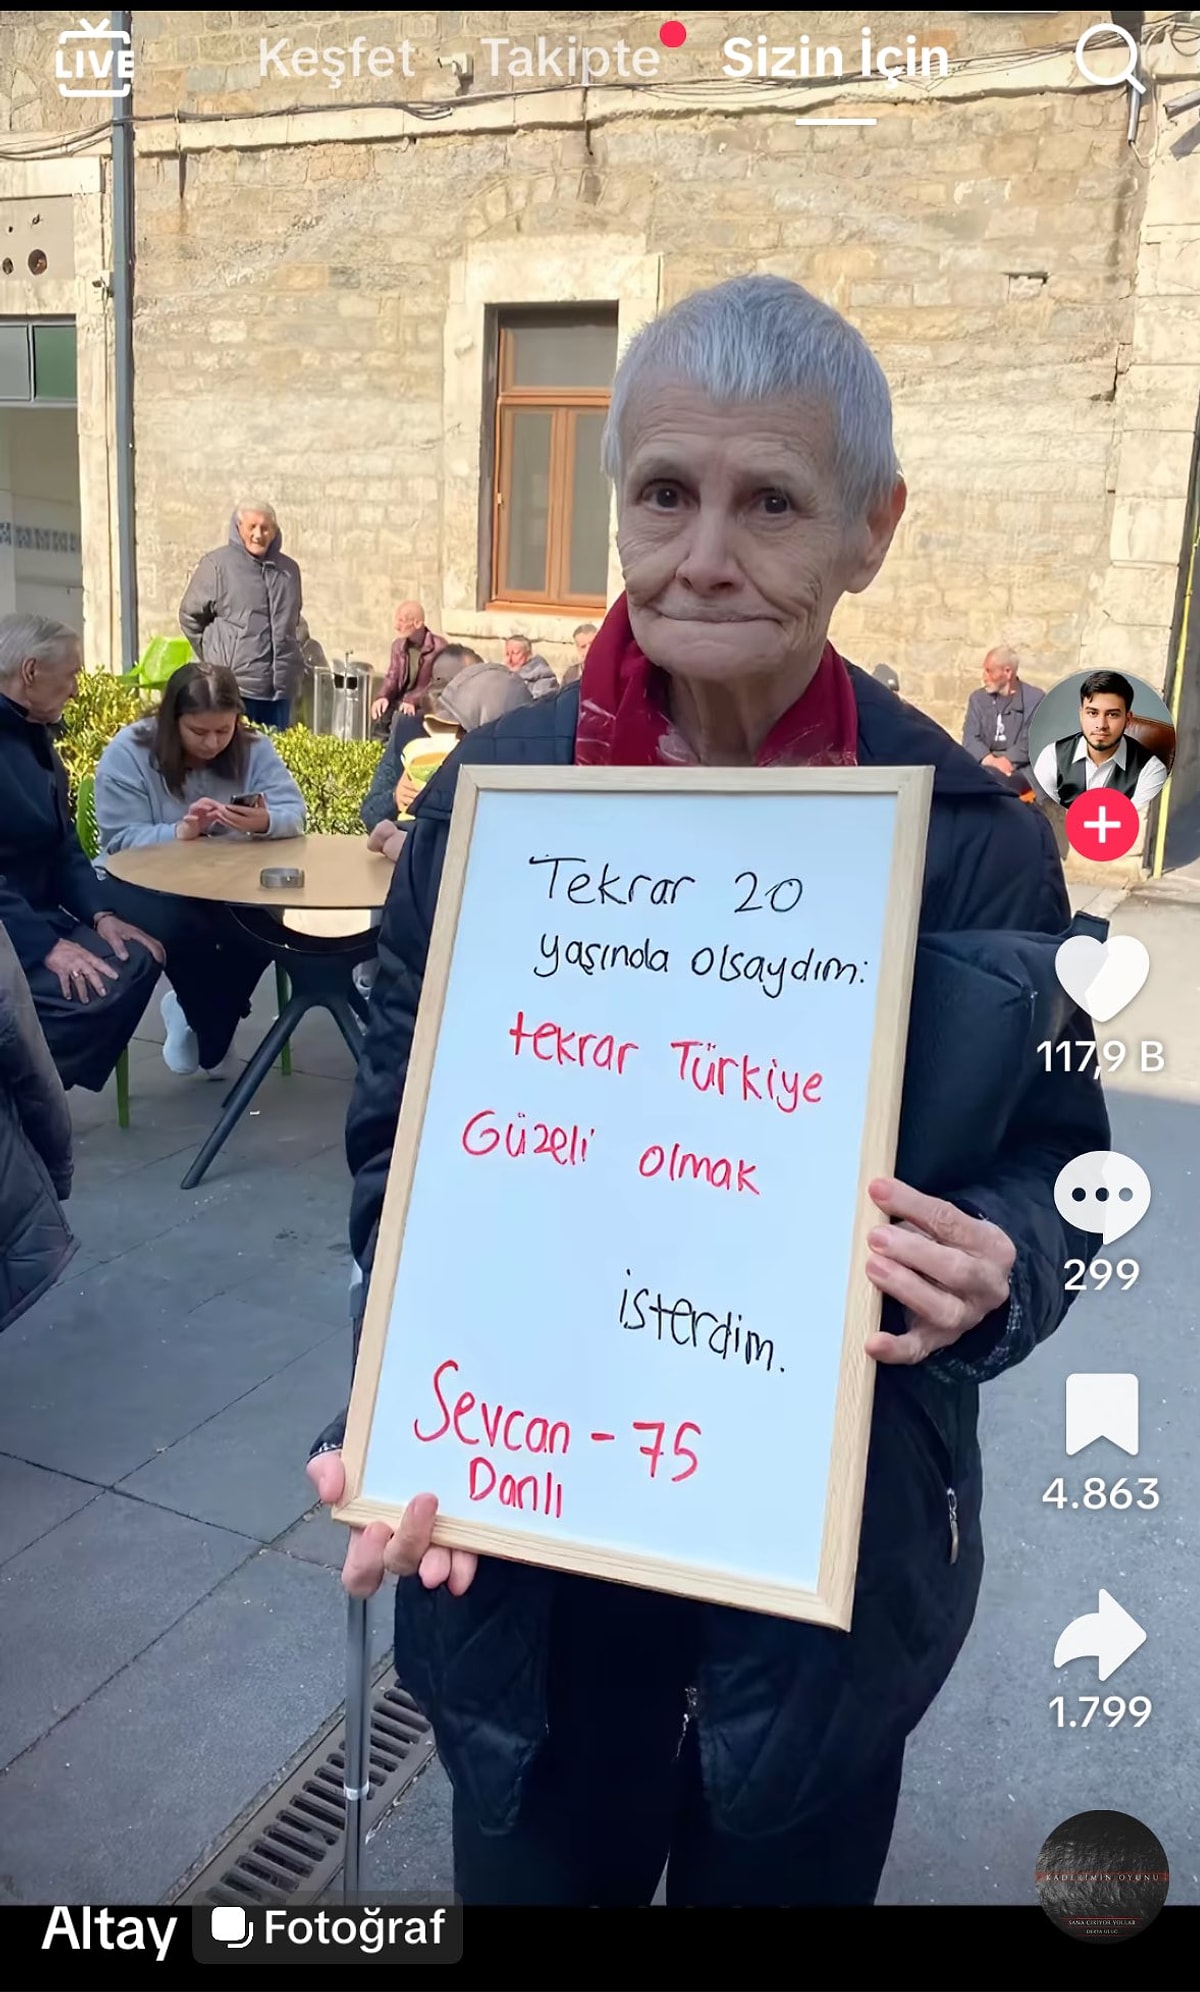 LIVE
Keşfet Takipte Sizin İçin
Tekrar 20
yaşında olsaydım:
tekrar Türkiye
Güzeli olmak
isterdim.
Sevcan - 75
Danlı
117,9 B
299
4.863
1.799
KADERİMİN OYUNU
SANA ÇIKIYOR YOLLAR
Altay Fotoğraf